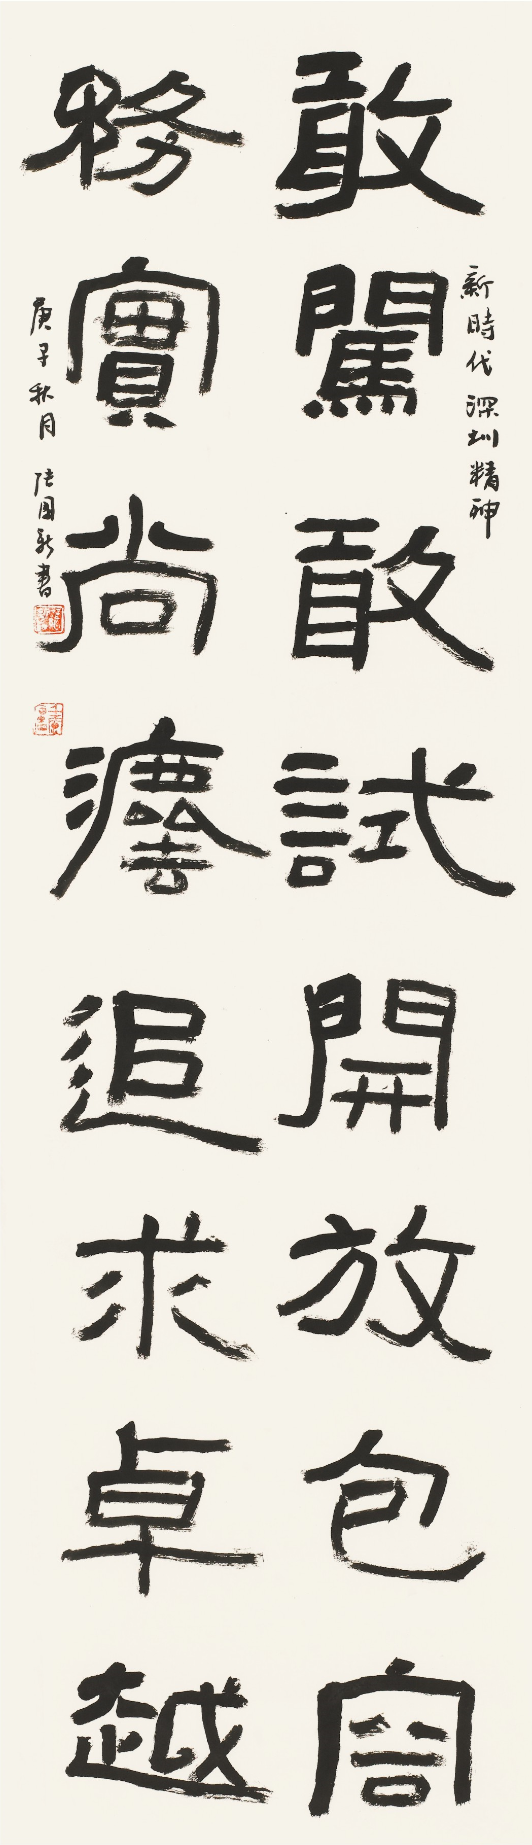 新時代深圳精神
敢闖敢試開放包容
務實尚灋追求卓越
庚子秋月 國新書